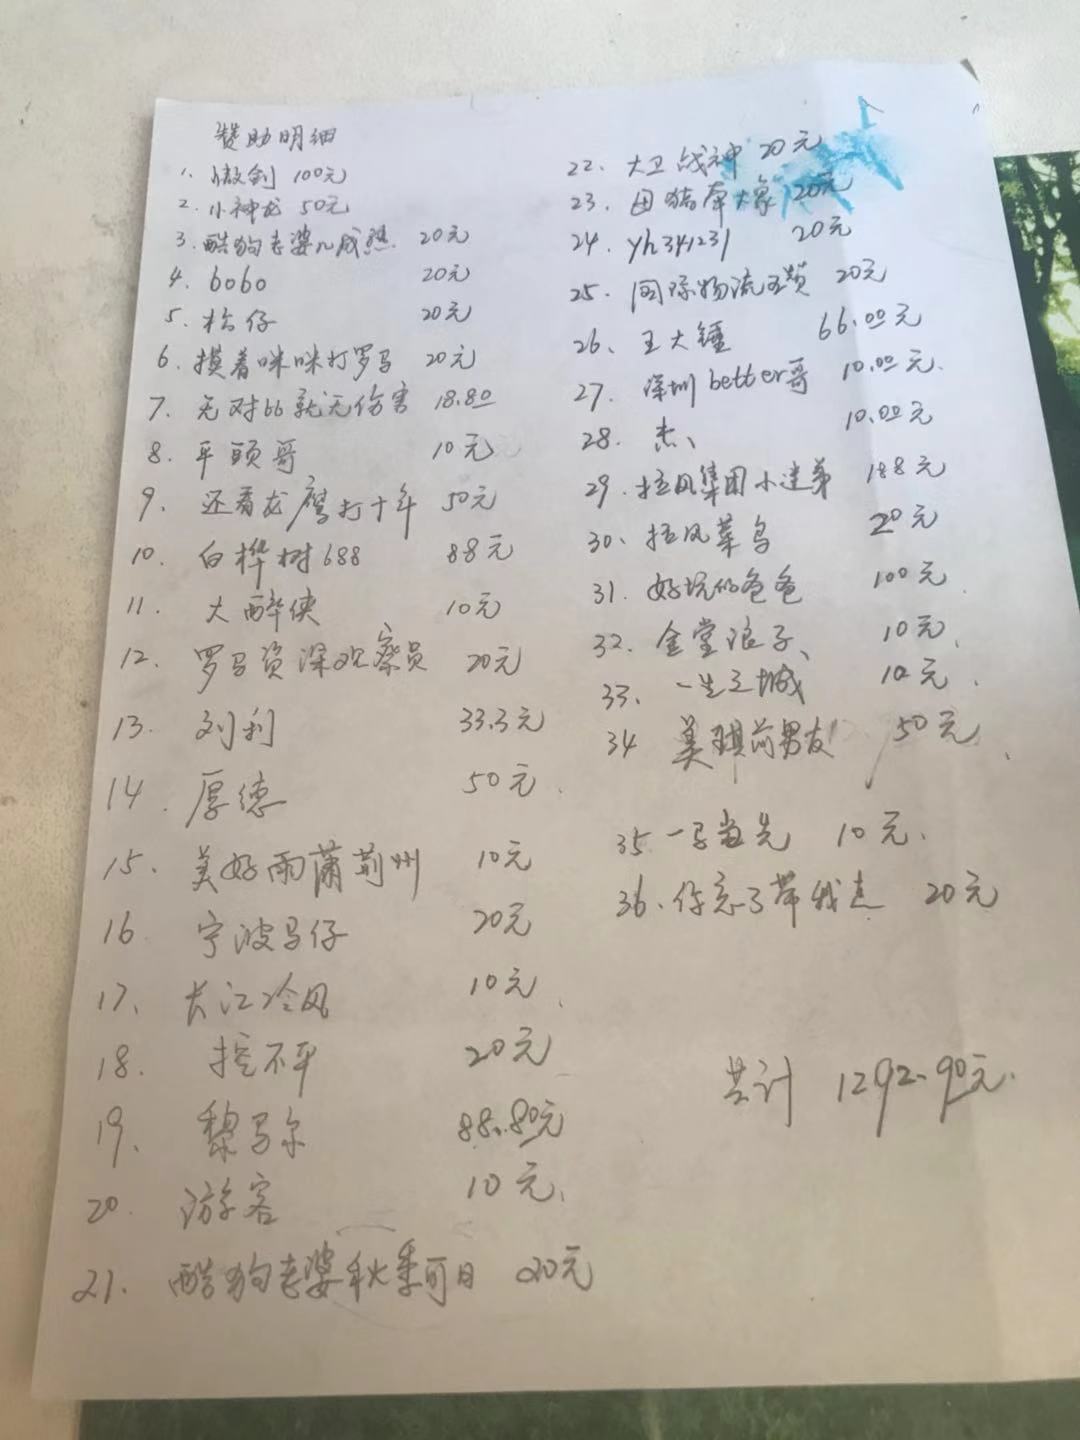 赞助明细
1. 傲剑 100元
2. 小神龙 50元
3. 酷狗老婆儿成熟 20元
4. bobo 20元
5. 松仔 20元
6. 摸着咪咪打罗马 20元
7. 无对bb就无伤害 18.80
8. 平头哥 10元
9. 还看龙鹰打十年 50元
10. 白桦树688 88元
11. 大醉侠 10元
12. 罗马资深观察员 20元
13. 刘利 33.3元
14. 厚德 50元
15. 美好雨蒲荆州 10元
16. 宁波马仔 20元
17. 长江冷风 10元
18. 挖不平 20元
19. 黎马尔 88.80元
20. 游客 10元
21. 酷狗老婆秋季可日 20元
22. 大卫战神 20元
23. 母猪奔大象 20元
24. yh341231 20元
25. 国际物流 20元
26. 王大锤 66.00元
27. 深圳better哥 10.00元
28. 杰、 10.00元
29. 拉风集团小迷弟 188元
30. 拉风菜鸟 20元
31. 好坑的爸爸 100元
32. 金堂浪子、 10元
33. 一生之城 10元
34 美琪前男友 50元
35 一马当先 10元
36. 你忘了带我走 20元
共计 1292.90元